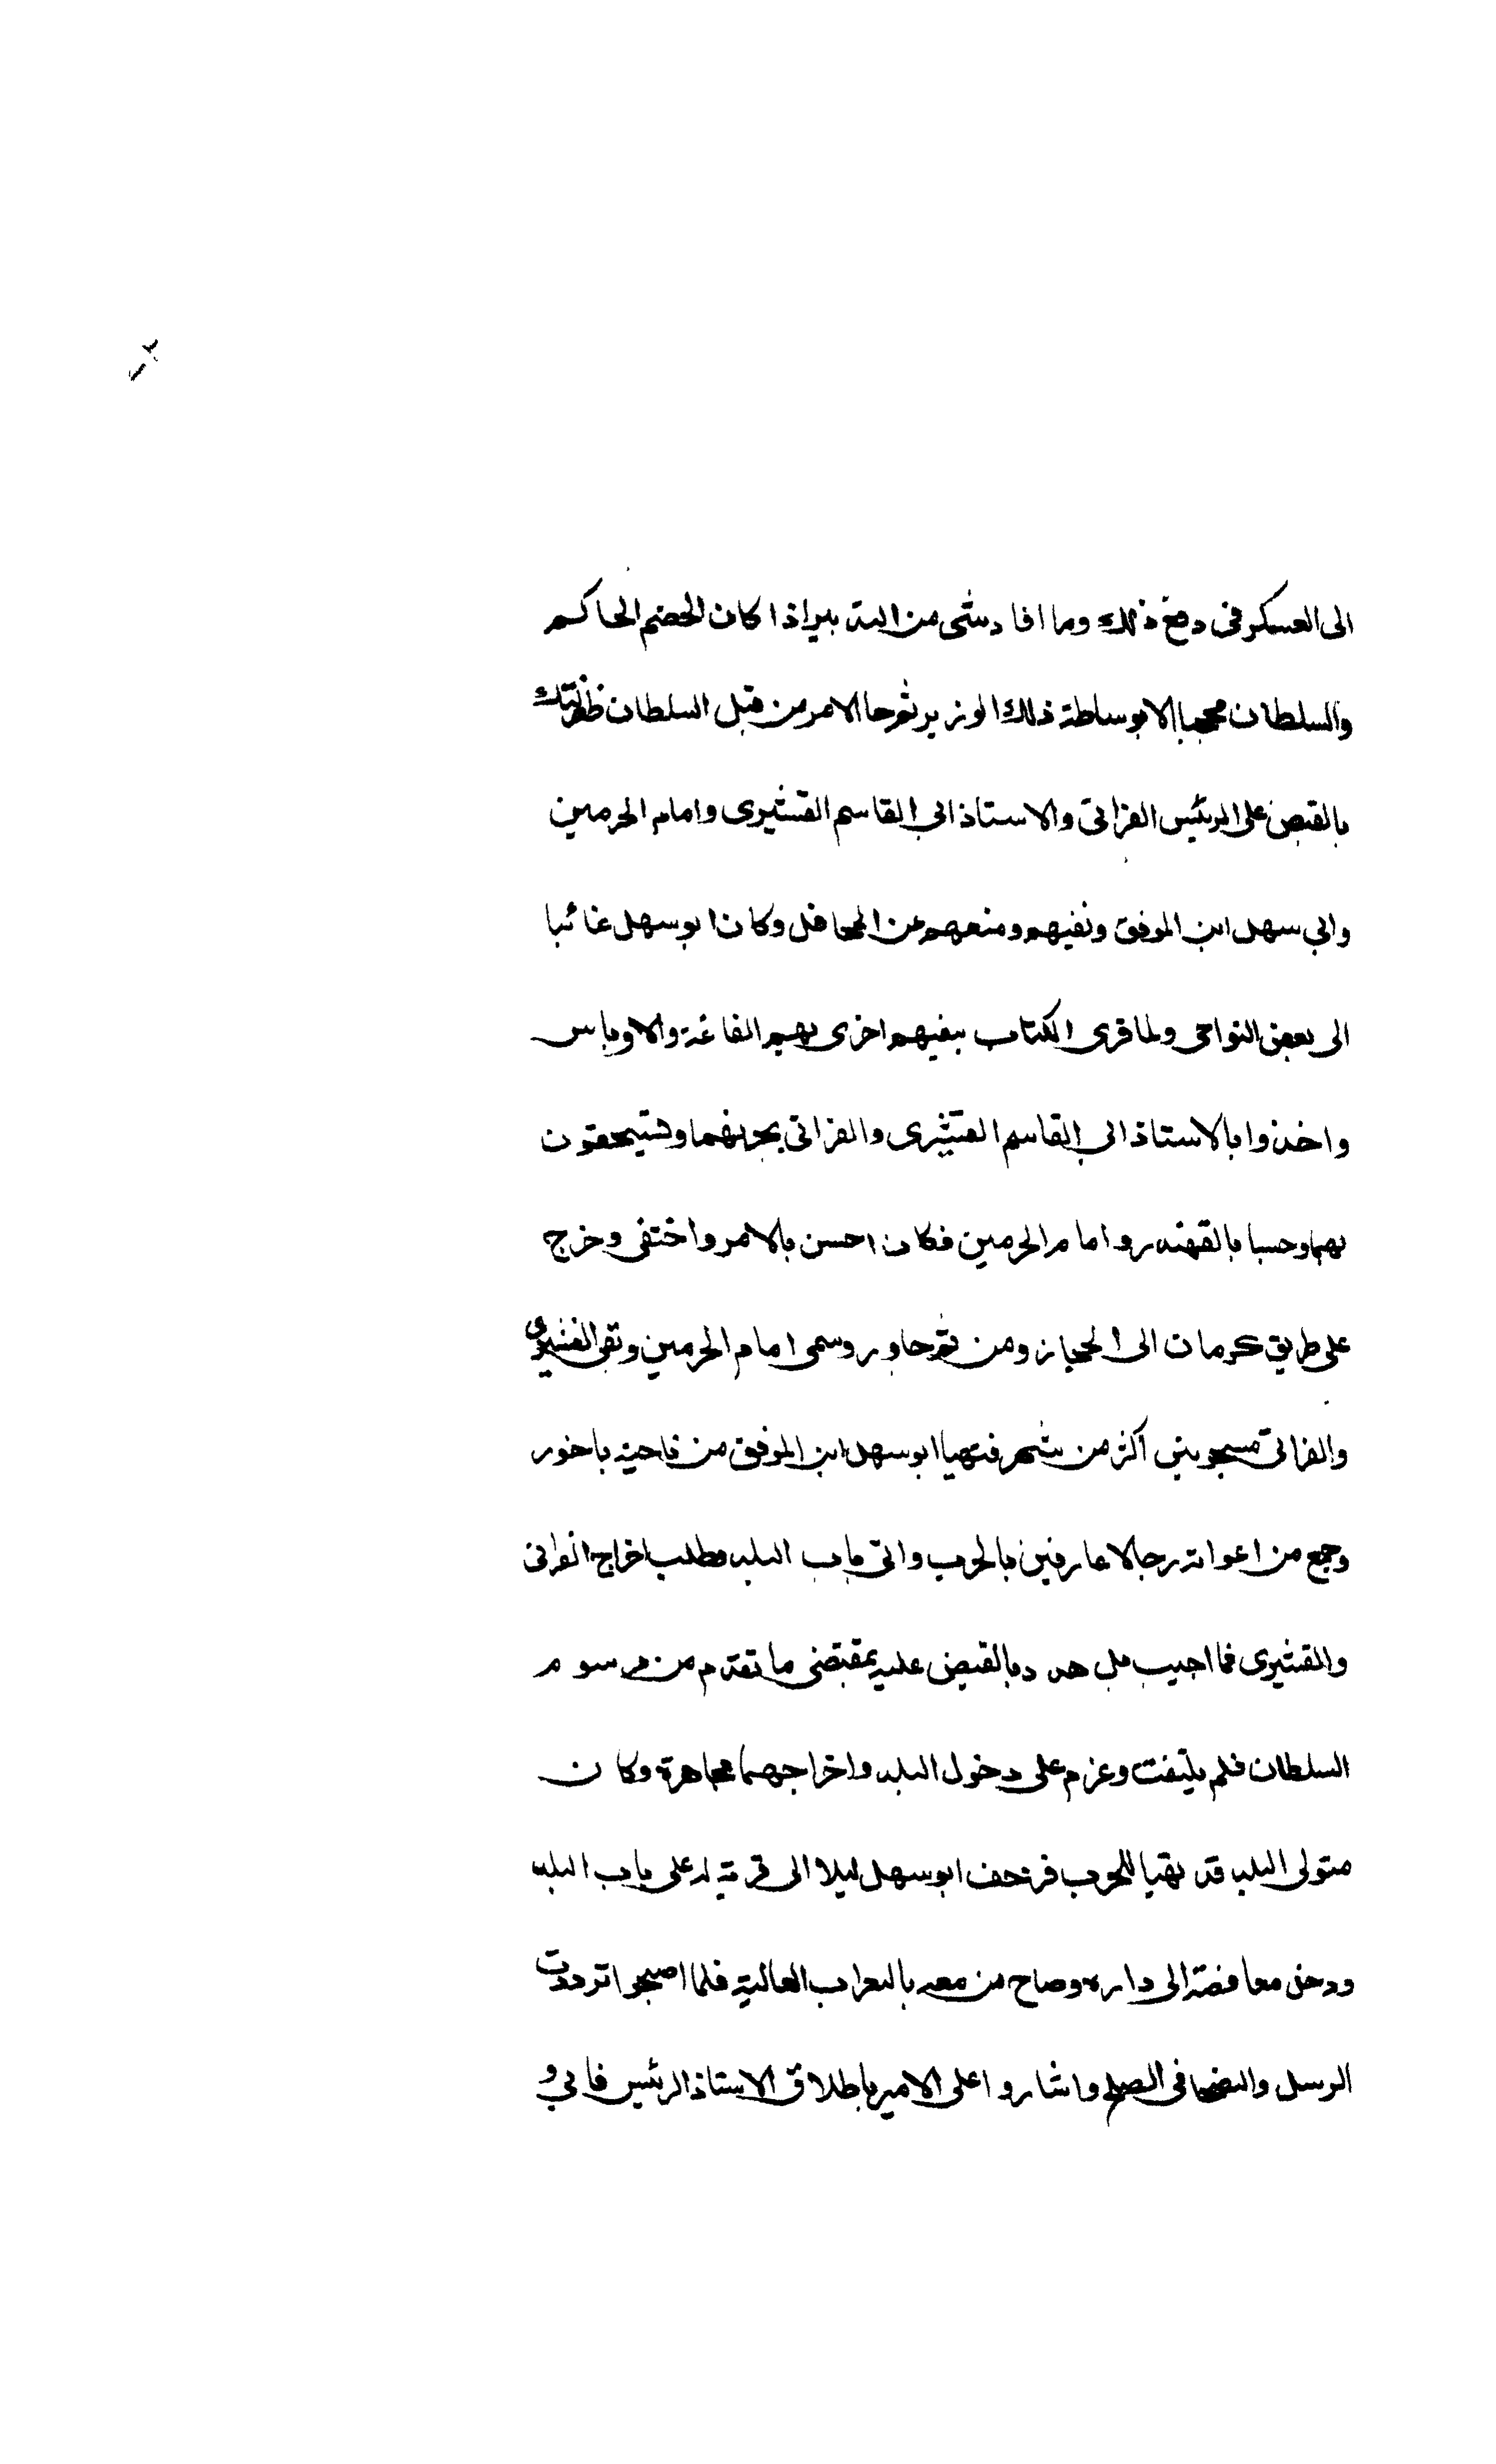 الى العسكر فى دفع ذلك وما افاد شى من التدبير اذا كان الخصم الحاكم
والسلطان محجبا الا بوساطة ذلك الوزير ثم جا الامر من قبل السلطان طغرلبك
بالقبض على الرئيس الفراتى والاستاذ ابى القاسم القشيرى وامام الحرمين
وابى سهل ابن الموفق ونفيهم ومنعهم عن المحافل وكان ابو سهل غائبا
الى بعض النواحى ولما قرى الكتاب بنفيهم اغرى بهم الغاغة والاوباش
واخذوا بالاستاذ ابى القاسم القشيرى والفراتى يجرونهما ويستخفون
بهما وحبسا بالقهندر وامام الحرمين فكان احسن بالامر واختفى وخرج
على طريق كرمان الى الحجاز ومن ثم جاور وسمى امام الحرمين وبقى القشيرى
والفراتى مسجونين اكثر من شهر فتهيا ابو سهل ابن الموفق من ناحية باخرز
وجمع من اعوانه رجالا عارفين بالحرب واتى باب البلد وطلب اخراج الفراتى
والقشيرى فما اجيب بل هدد بالقبض عليه بمقتضى ما تقدم من مرسوم
السلطان فلم يلتفت وعزم على دخول البلد واخراجهما مجاهرة وكان
متولى البلد قد تهيا للحرب فزحف ابو سهل ليلا الى قرية له على باب البلد
ودخل مغافصة الى داره وصاح من معه بالنعرات العالية فلما اصبحوا ترددت
الرسل والنصحا فى الصلح واشاروا على الامير باطلاق الاستاذ الرئيس فابى و